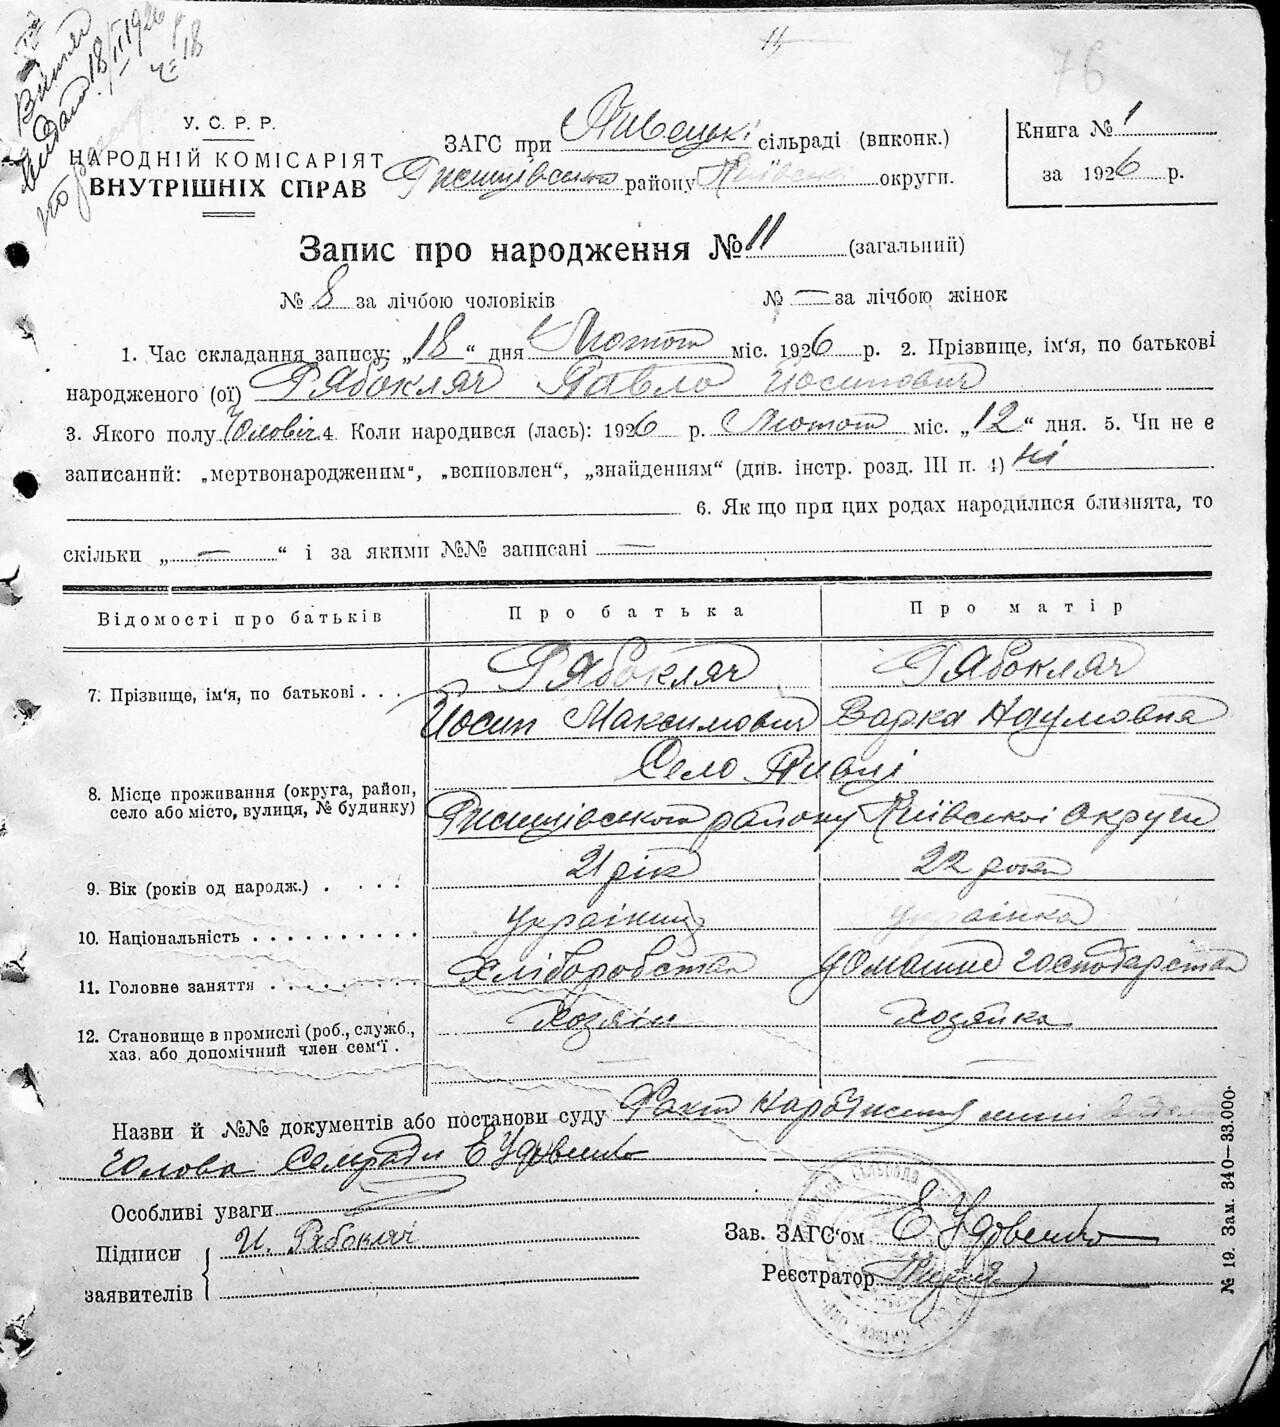 Витяг
видат 18/II 1926
ч. 18
11
76
У. С. Р. Р.
НАРОДНІЙ КОМІСАРІЯТ
ВНУТРІШНІХ СПРАВ
ЗАГС при Пивецькі сільраді (виконк.)
Ржищівського району Київської округи.
Книга № 1
за 1926 р.
Запис про народження № 11 (загальний)
№ 8 за лічбою чоловіків № — за лічбою жінок
1. Час складання запису: „18“ дня Лютого міс. 1926 р. 2. Прізвище, ім'я, по батькові
народженого (ої) Рябокляч Павло Йосипович
3. Якого полу Чоловіч. 4. Коли народився (лась): 1926 р. Лютого міс. „12“ дня. 5. Чи не є
записаний: „мертвонародженим“, „всиновлен“, „знайденням“ (див. інстр. розд. III п. 4) ні
6. Як що при цих родах народилися близнята, то
скільки „—“ і за якими №№ записані —
Відомості про батьків Про батька Про матір
7. Прізвище, ім'я, по батькові . . . Рябокляч Рябокляч
Йосип Максимович Варка Наумовна
8. Місце проживання (округа, район, село або місто, вулиця, № будинку) Село Пивці
Ржищівського району Київської округи
9. Вік (років од народж.) . . . . 21 рік 22 роки
10. Національність . . . . . . . . . . українець українка
11. Головне заняття . . . . . . . . . Хліборобство домашнє господарство
12. Становище в промислі (роб., служб., хаз. або допомічний член сем'ї . Хозяїн Хозяйка
—
Назви й №№ документів або постанови суду Факт народження мені
Голова Сельради Е Удовенко
Особливі уваги
Підписи
заявителів
И. Рябокляч
Зав. ЗАГС'ом Е Удовенко
Реєстратор
№ 19. Зам. 340—33.000.